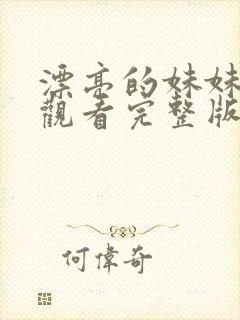 漂亮的妹妹
觀看完整版
何偉奇